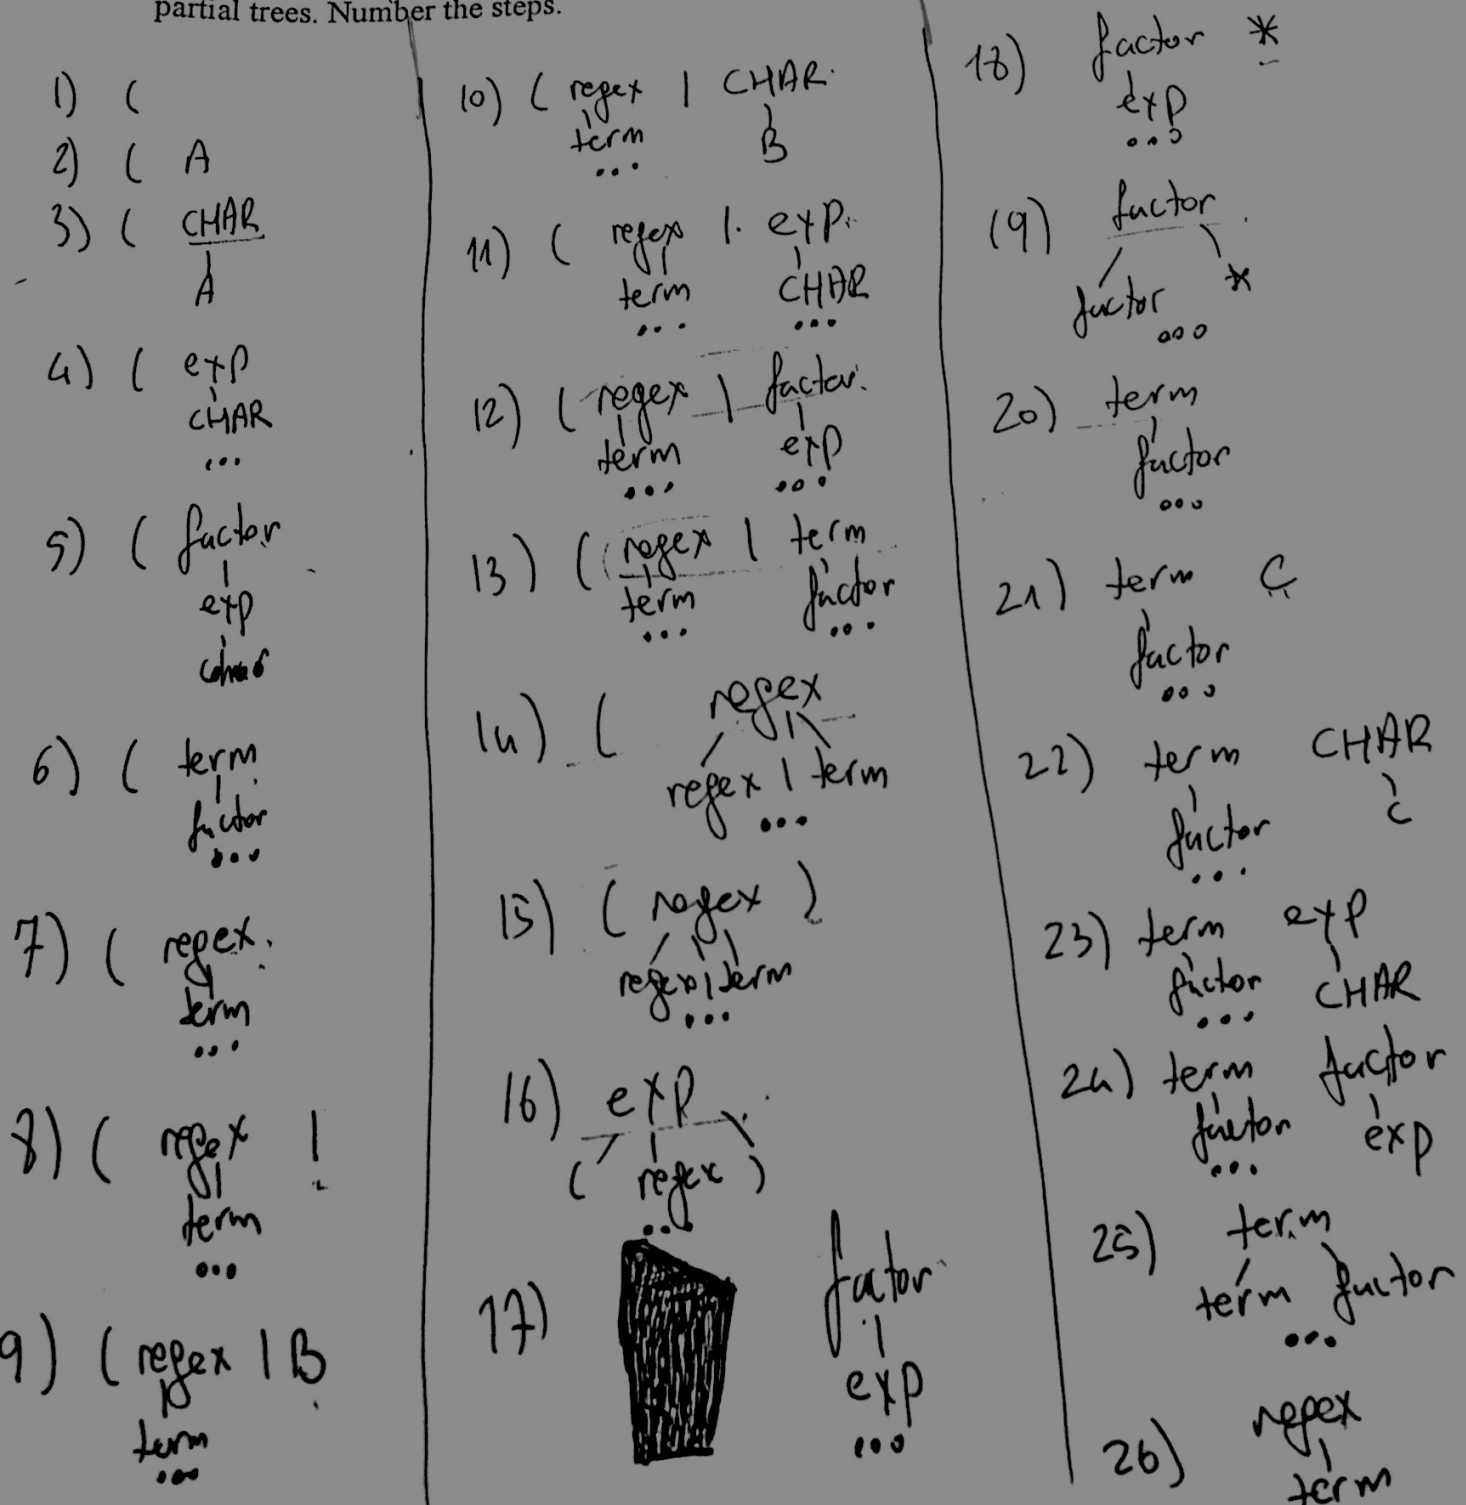 partial trees. Number the steps.
1) (
2) ( A
3) ( CHAR
A
4) ( exp
CHAR
...
5) ( factor
exp
char
6) ( term
factor
...
7) ( regex
term
...
8) ( regex |
term
...
9) ( regex | B
term
...
10) ( regex | CHAR
term B
...
11) ( regex | exp
term CHAR
... ...
12) ( regex | factor
term exp
... ...
13) ( regex | term
term factor
... ...
14) ( regex
regex | term
...
15) ( regex )
regex | term
...
16) exp
( regex )
...
17) factor
exp
...
18) factor *
exp
...
19) factor
factor *
...
20) term
factor
...
21) term C
factor
...
22) term CHAR
factor C
...
23) term exp
factor CHAR
...
24) term factor
factor exp
...
25) term
term factor
...
26) regex
term